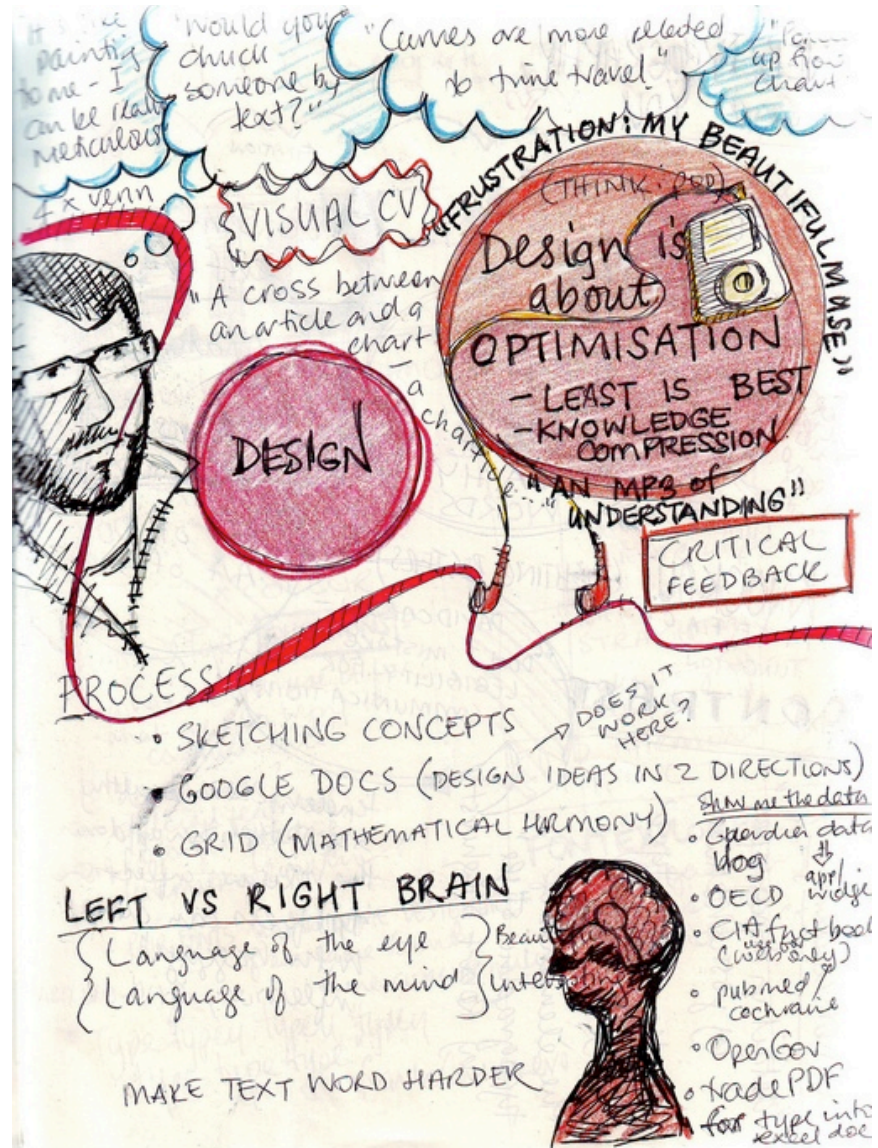 painting
to me - I
can be really
meticulous
"Would you
chuck
someone by
text?"
"Curves are more related
to time travel"
up
chart"
4 x venn
VISUAL CV
"A cross between
an article and a
chart
-
a
chartice...
"FRUSTRATION: MY BEAUTIFUL MUSE"
(THINK: POD)
Design is
about
OPTIMISATION
- LEAST IS BEST
- KNOWLEDGE
COMPRESSION
"AN MP3 of
UNDERSTANDING"
DESIGN
CRITICAL
FEEDBACK
PROCESS
• SKETCHING CONCEPTS
→ DOES IT
WORK
HERE?
• GOOGLE DOCS (DESIGN IDEAS IN 2 DIRECTIONS)
• GRID (MATHEMATICAL HRMONY)
LEFT VS RIGHT BRAIN
Language of the eye
Language of the mind
MAKE TEXT WORD HARDER
Show me the data
• Guardian data
blog
app/
• OECD
• CIA fact book
• pubmed/
cochrane
• OpenGov
• tradePDF
for type into
excel doc